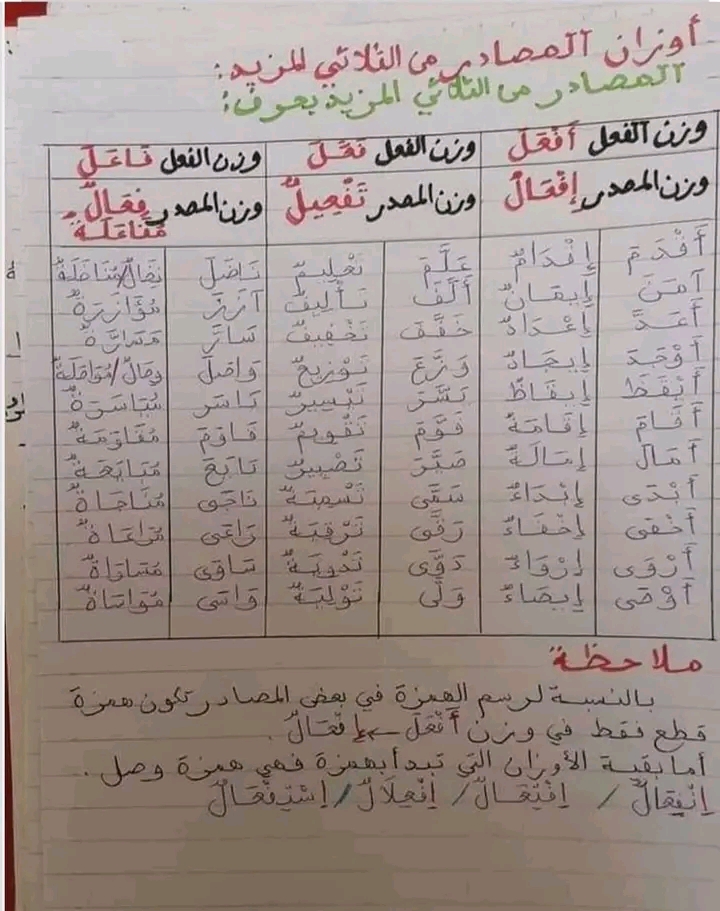 أوزان المصادر من الثلاثي المزيد:
المصادر من الثلاثي المزيد بحرف:
وزن الفعل أَفْعَلَ وزن الفعل فَعَّلَ وزن الفعل فَاعَلَ
وزن المصدر إِفْعَالٌ وزن المصدر تَفْعِيلٌ وزن المصدر فِعَالٌ -
مُفَاعَلَةٌ
أَقْدَمَ إِقْدَامٌ عَلَّمَ تَعْلِيمٌ نَاضَلَ نِضَالٌ/مُنَاضَلَةٌ
آمَنَ إِيمَانٌ أَلَّفَ تَأْلِيفٌ آزَرَ مُؤَازَرَةٌ
أَعَدَّ إِعْدَادٌ خَفَّفَ تَخْفِيفٌ سَارَّ مُسَارَّةٌ
أَوْجَدَ إِيجَادٌ وَزَّعَ تَوْزِيعٌ وَاصَلَ وِصَالٌ/مُوَاصَلَةٌ
أَيْقَظَ إِيقَاظٌ يَسَّرَ تَيْسِيرٌ يَاسَرَ مُيَاسَرَةٌ
أَقَامَ إِقَامَةٌ قَوَّمَ تَقْوِيمٌ قَاوَمَ مُقَاوَمَةٌ
أَمَالَ إِمَالَةٌ صَيَّرَ تَصْيِيرٌ تَابَعَ مُتَابَعَةٌ
أَبْدَى إِبْدَاءٌ سَمَّى تَسْمِيَةٌ نَاجَى مُنَاجَاةٌ
أَخْفَى إِخْفَاءٌ رَقَّى تَرْقِيَةٌ رَاعَى مُرَاعَاةٌ
أَرْوَى إِرْوَاءٌ دَوَّى تَدْوِيَةٌ سَاوَى مُسَاوَاةٌ
أَوْصَى إِيصَاءٌ وَلَّى تَوْلِيَةٌ وَاسَى مُوَاسَاةٌ
ملاحظة
بالنسبة لرسم الهمزة في بعض المصادر تكون همزة
قطع فقط في وزن أَفْعَلَ ← إِفْعَالٌ.
أما بقية الأوزان التي تبدأ بهمزة فهي همزة وصل.
اِنْفِعَالٌ / اِفْتِعَالٌ / اِفْعِلَالٌ / اِسْتِفْعَالٌ